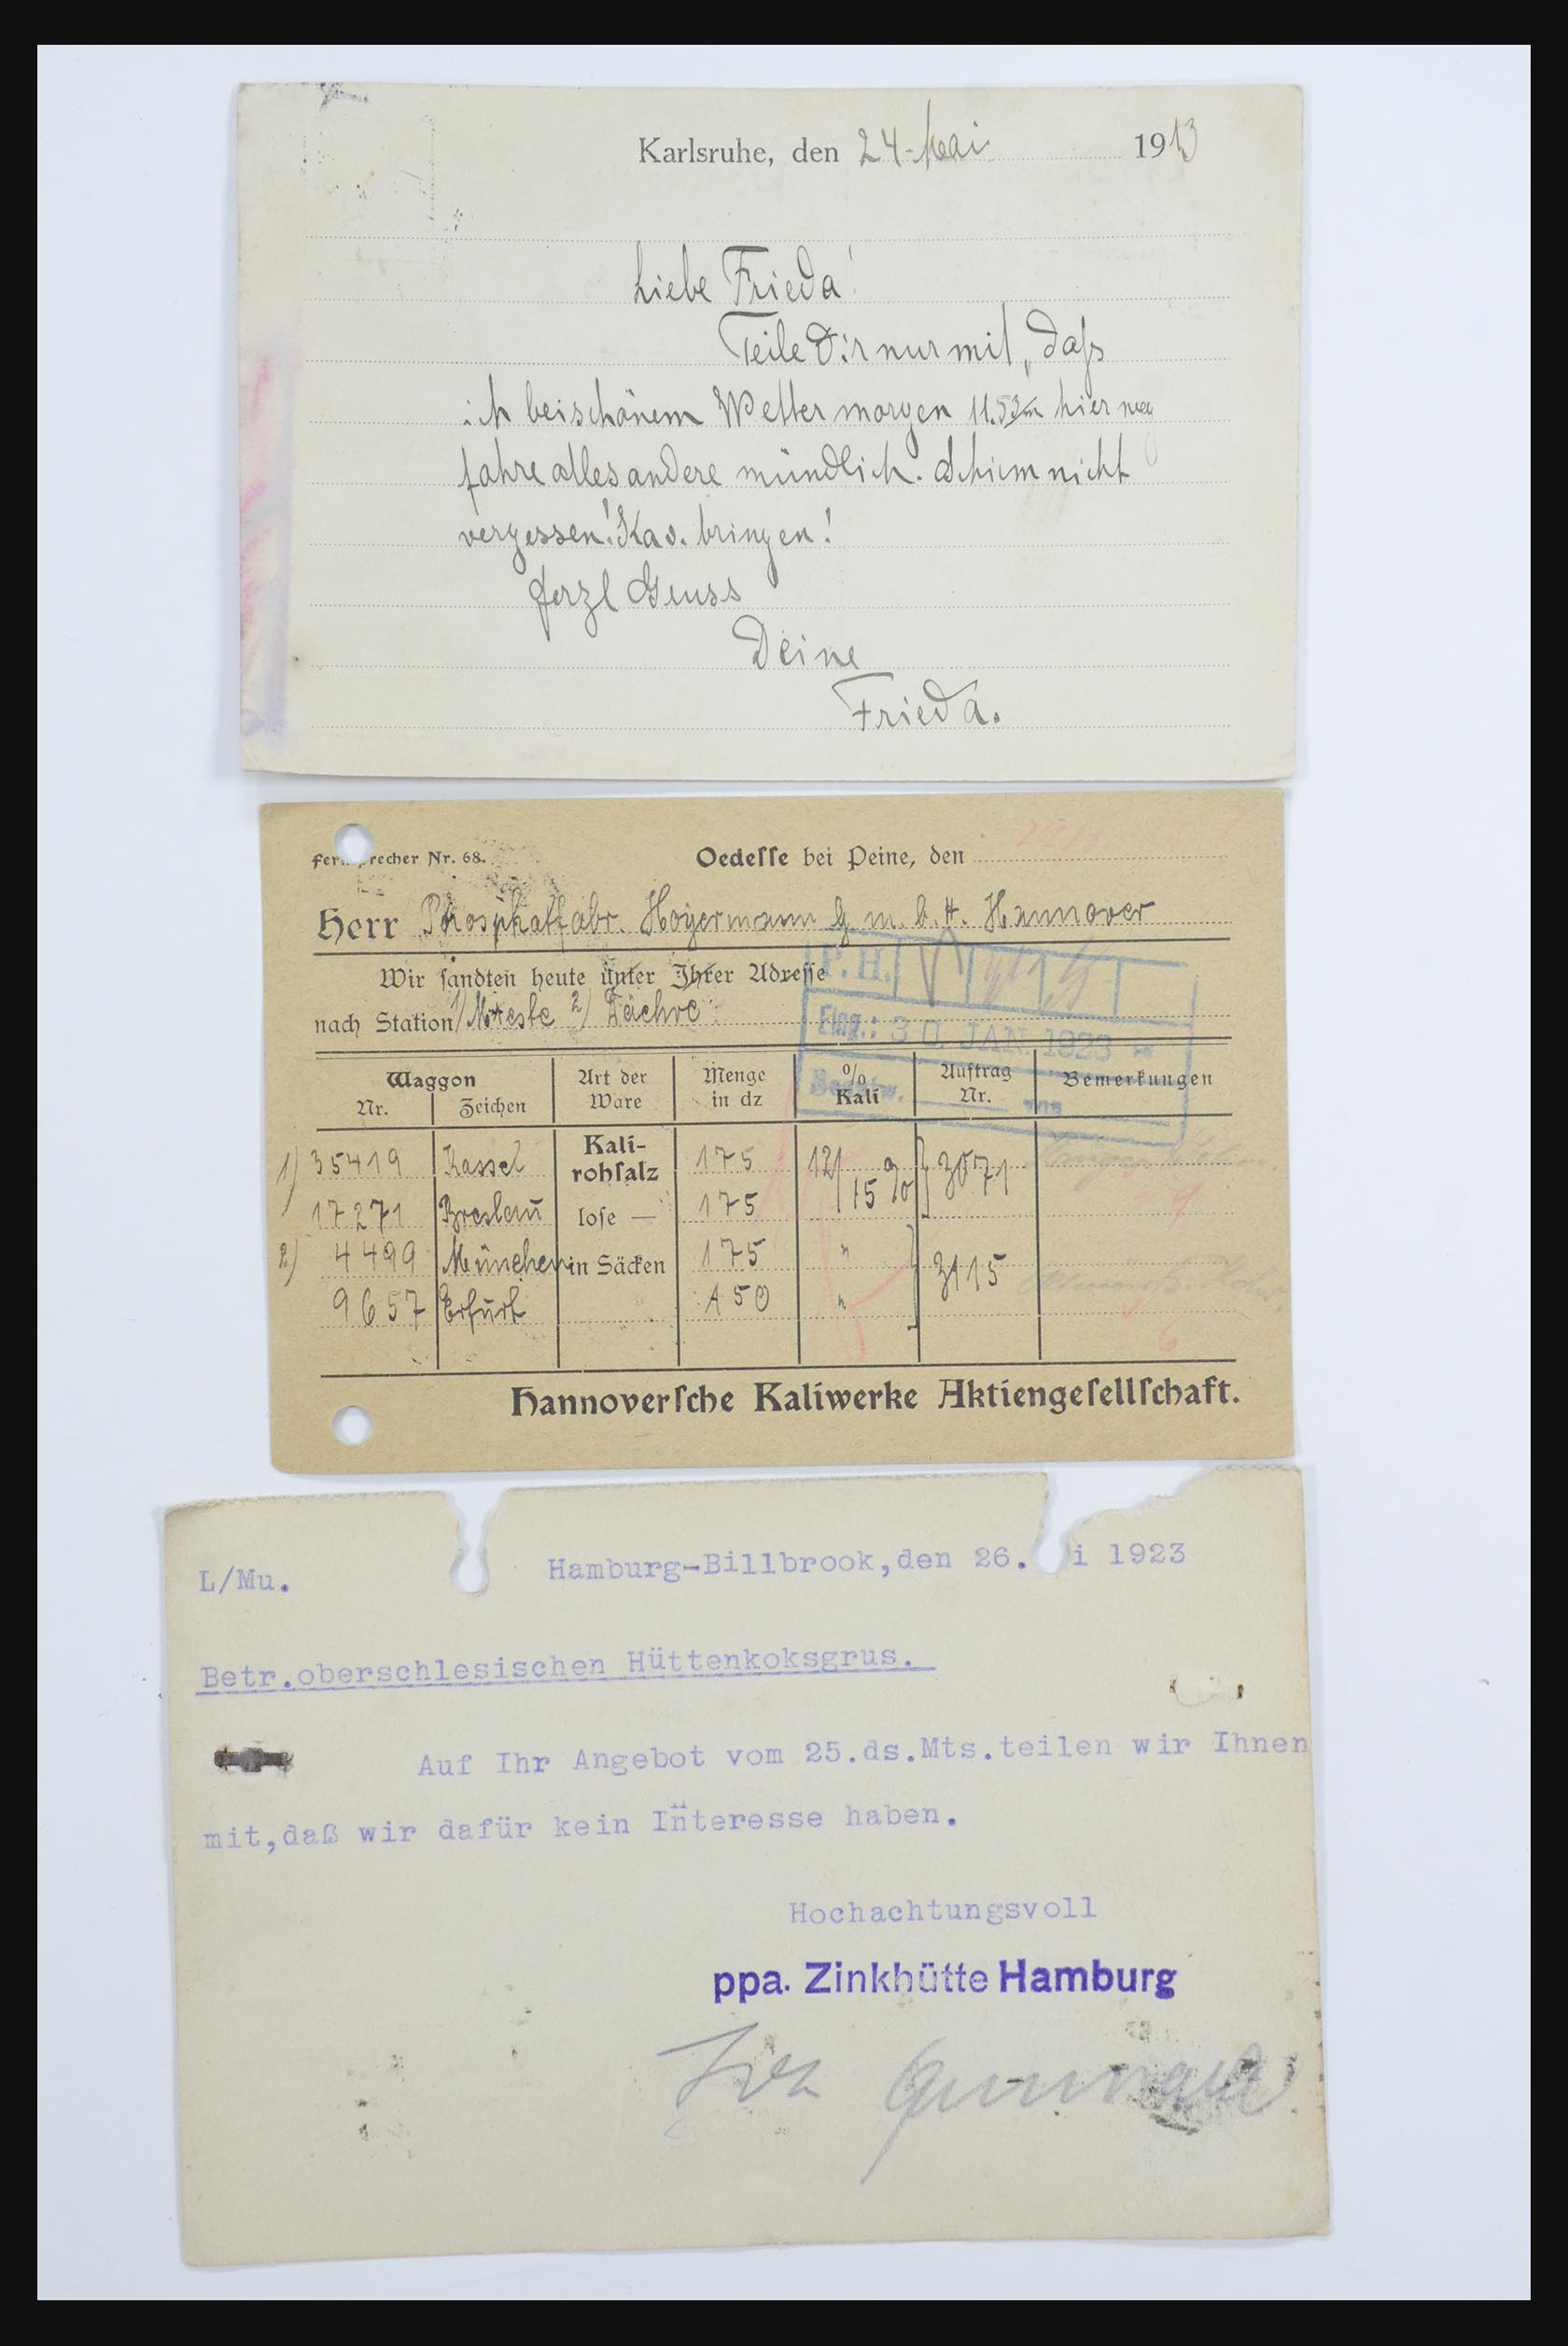 Karlsruhe, den 24. Mai 1913
Liebe Frieda!
Teile Dir nur mit, daß
ich bei schönem Wetter morgen 11.53 hier weg
fahre alles andere mündlich. Schirm nicht
vergessen! Kav. bringen!
Herzl Gruss
Deine
Frieda.
Fernsprecher Nr. 68. Oedesse bei Peine, den
Herr Phosphatfabr. Hoyermann G. m. b. H. Hannover
Wir sandten heute unter Ihrer Adresse
P. H.
nach Station 1) Mieste 2)
Eing.: 30. JAN. 1923
Waggon Art der Ware Menge in dz % Kali Auftrag Nr. Bemerkungen
Nr. Zeichen
1) 35419 Kassel Kali-rohsalz 175 12/15 % 3071
17271 Breslau lose — 175
2) 4499 München in Säcken 175 " 3115
9657 Erfurt 150 "
Hannoversche Kaliwerke Aktiengesellschaft.
L/Mu. Hamburg-Billbrook,den 26. i 1923
Betr.oberschlesischen Hüttenkoksgrus.
Auf Ihr Angebot vom 25.ds.Mts.teilen wir Ihnen
mit,daß wir dafür kein Interesse haben.
Hochachtungsvoll
ppa. Zinkhütte Hamburg